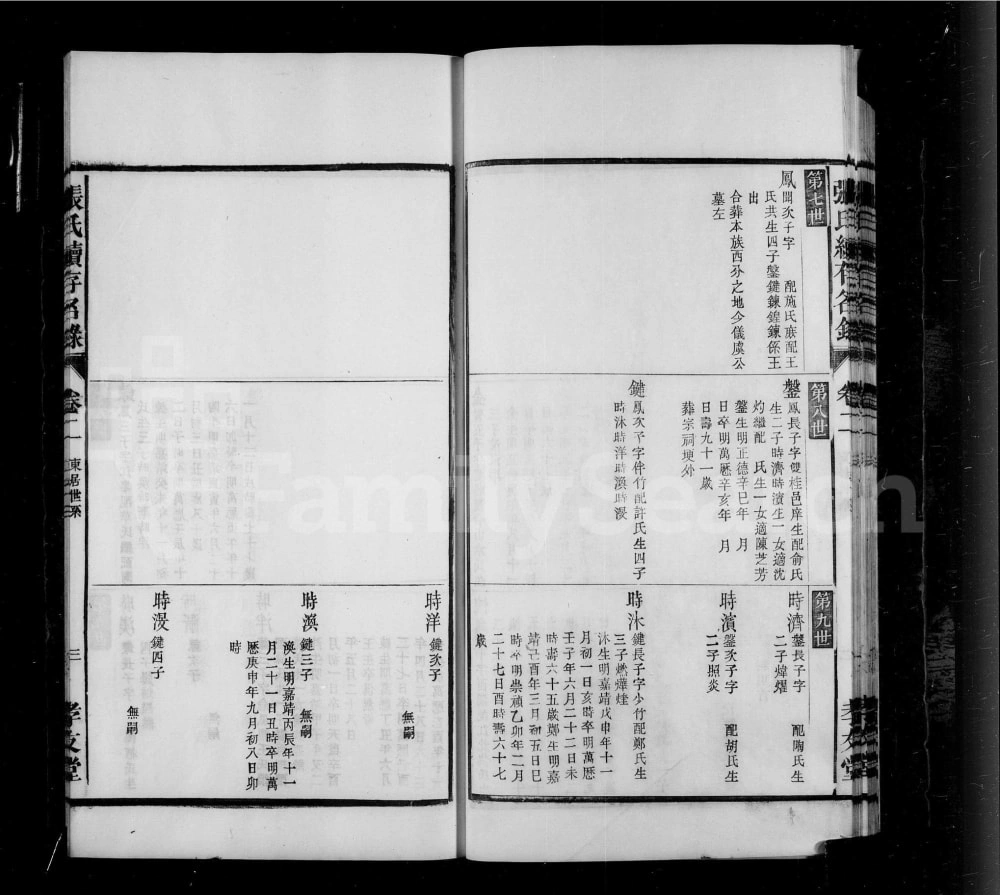 張氏續存名錄
卷二
孝友堂
第七世
鳳 開次子字 配施氏族配王
氏共生四子鏧鍵鍊鍠鍊係王
出
合葬本族西分之地少儀虞公
墓左
第八世
鏧 鳳長子字雙桂邑庠生配俞氏
生二子時濟時濱生一女適沈
灼繼配 氏生一女適陳芝芳
鏧生明正德辛巳年 月
日卒明萬曆辛亥年 月
日壽九十一歲
葬宗祠埂外
鍵 鳳次子字伴竹配許氏生四子
時沐時洋時澳時漫
第九世
時濟 鏧長子字 配陶氏生
二子煒燿
時濱 鏧次子字 配胡氏生
二子照炎
時沐 鍵長子字少竹配鄭氏生
三子燃燁煃
沐生明嘉靖戊申年十一
月初一日亥時卒明萬曆
壬子年六月二十二日未
時壽六十五歲鄭生明嘉
靖己酉年三月初五日巳
時卒明崇禎乙卯年二月
二十七日酉時壽六十七
歲
時洋 鍵次子 無嗣
時澳 鍵三子 無嗣
澳生明嘉靖丙辰年十一
月二十一日丑時卒明萬
曆庚申年九月初八日卯
時
時漫 鍵四子 無嗣
張氏續存名錄
卷二
東居世系
三
孝友堂
FamilySearch